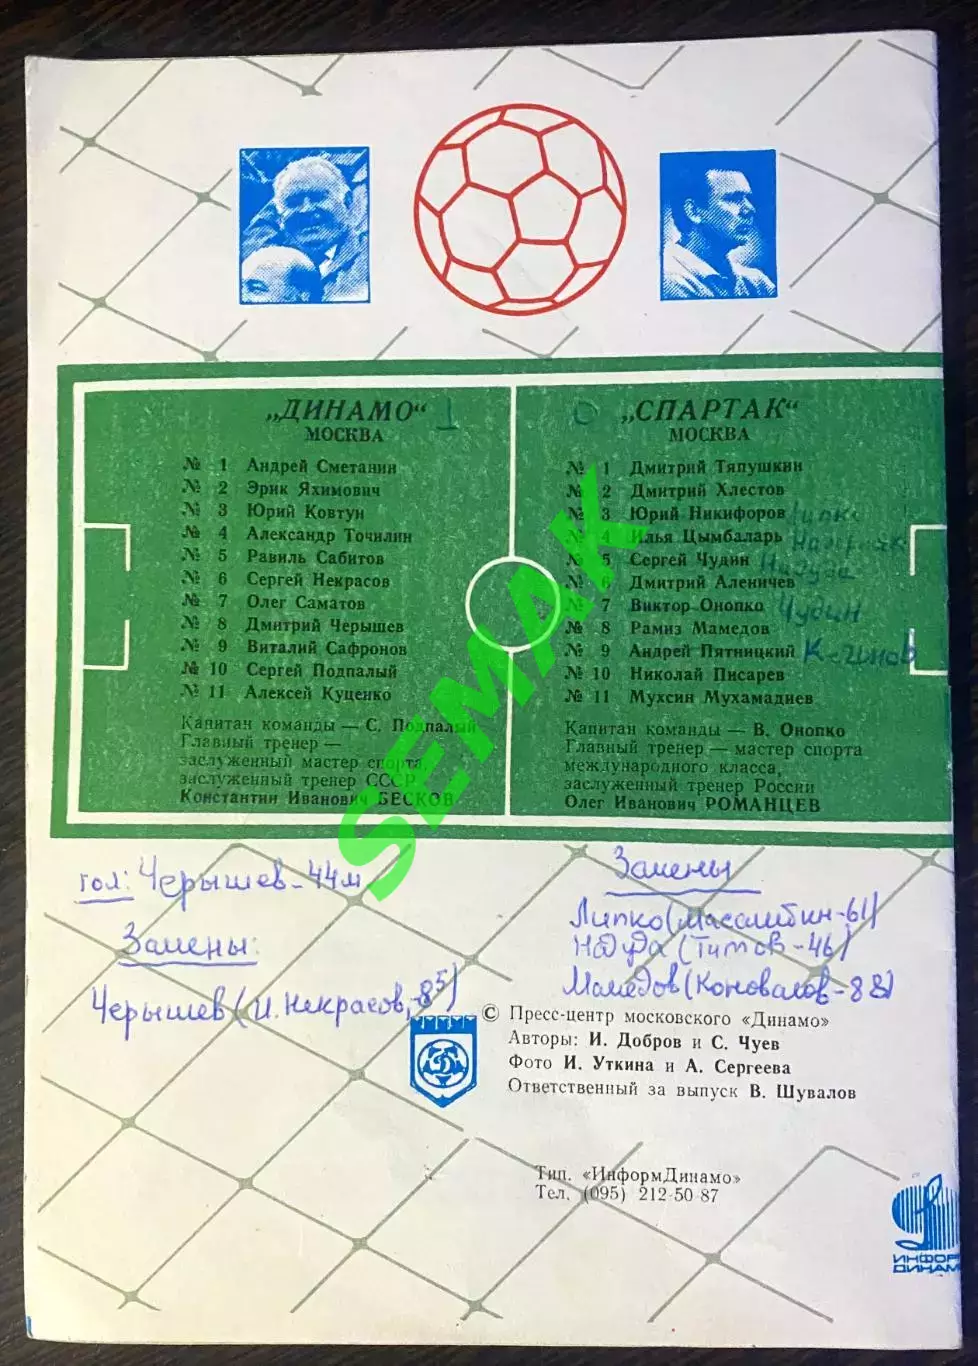 „ДИНАМО" 1
МОСКВА
№ 1 Андрей Сметанин
№ 2 Эрик Яхимович
№ 3 Юрий Ковтун
№ 4 Александр Точилин
№ 5 Равиль Сабитов
№ 6 Сергей Некрасов
№ 7 Олег Саматов
№ 8 Дмитрий Черышев
№ 9 Виталий Сафронов
№ 10 Сергей Подпалый
№ 11 Алексей Куценко
Капитан команды — С. Подпалый
Главный тренер —
заслуженный мастер спорта,
заслуженный тренер СССР
Константин Иванович БЕСКОВ
0 „СПАРТАК"
МОСКВА
№ 1 Дмитрий Тяпушкин
№ 2 Дмитрий Хлестов
№ 3 Юрий Никифоров Липко
№ 4 Илья Цымбаларь
№ 5 Сергей Чудин Надуда
№ 6 Дмитрий Аленичев
№ 7 Виктор Онопко Чудин
№ 8 Рамиз Мамедов
№ 9 Андрей Пятницкий Кечинов
№ 10 Николай Писарев
№ 11 Мухсин Мухамадиев
Капитан команды — В. Онопко
Главный тренер — мастер спорта
международного класса,
заслуженный тренер России
Олег Иванович РОМАНЦЕВ
SEMAK
гол: Черышев-44м
Замены:
Черышев (И. Некрасов, -85)
Замены
Липко (Масалитин-61)
Надуда (Титов-46)
Мамедов (Коновалов-88)
© Пресс-центр московского «Динамо»
Авторы: И. Добров и С. Чуев
Фото И. Уткина и А. Сергеева
Ответственный за выпуск В. Шувалов
Тип. «ИнформДинамо»
Тел. (095) 212-50-87
ИНФОР
ДИНАМ